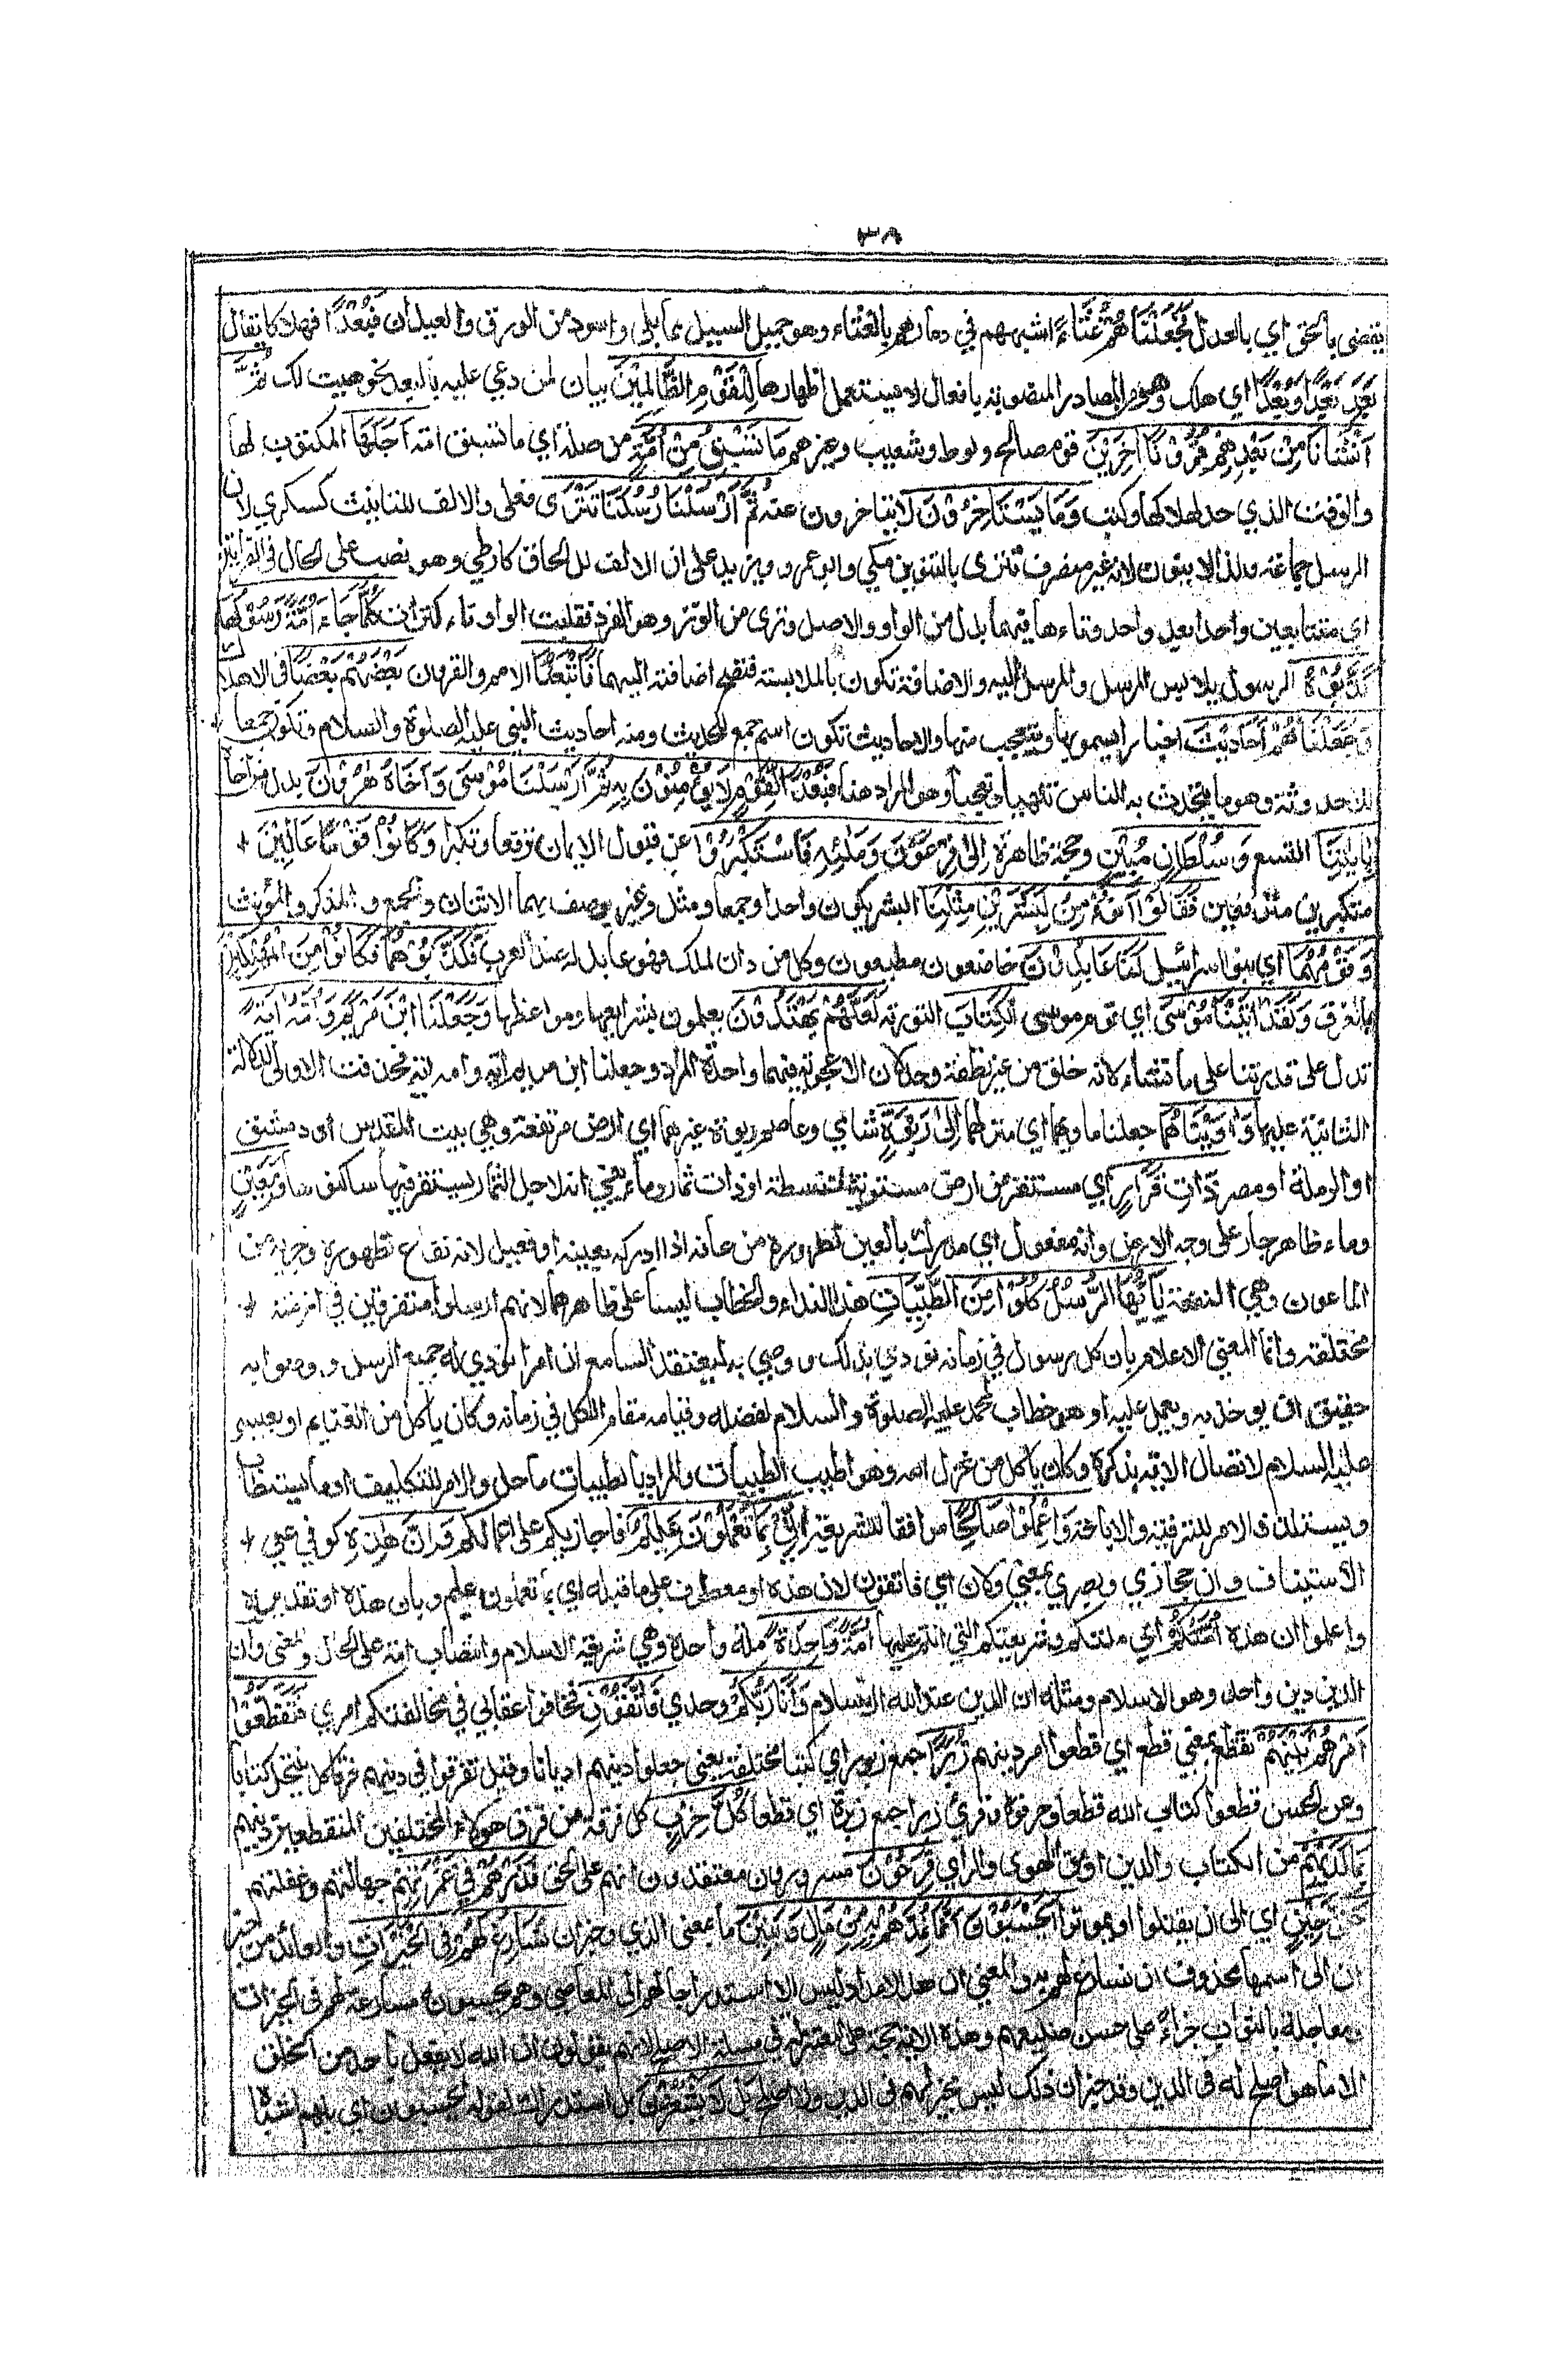 ٣٨
يقضى بالحق اي بالعدل فَجَعَلْنَاهُمْ غُثَاءً اشبههم في دمارهم بالغثاء وهو حميل السيل مما بلى واسود من الورق والعيدان فَبُعْدًا فهلاكا يقال
بَعِدَ بَعَدًا وَبُعْدًا اي هلك وهو من المصادر المنصوبة بافعال لا يستعمل اظهارها لِلْقَوْمِ الظَّالِمِيْنَ بيان لمن دعي عليه بالبعد نحو هيت لك ثُمَّ
اَنْشَأْنَا مِنْ بَعْدِهِمْ قُرُوْنًا اٰخَرِيْنَ قوم صالح ولوط وشعيب وغيرهم مَا تَسْبِقُ مِنْ اُمَّةٍ من صلة اي ما تسبق امة اَجَلَهَا المكتوب لها
والوقت الذي حد لهلاكها وكتب وَمَا يَسْتَأْخِرُوْنَ لا يتاخرون عنه ثُمَّ اَرْسَلْنَا رُسُلَنَا تَتْرٰى فعلى والالف للتانيث كسكرى لان
الرسل جماعة ولذا لا ينون لانه غير منصرف تترى بالتنوين مكي وابو عمرو ويزيد على ان الالف للالحاق كارطى وهو نصب على الحال في القراءتين
اي متتابعين واحدا بعد واحد وتاءها فيهما بدل من الواو والاصل وترى من الوتر وهو الفرد فقلبت الواو تاء كتراث كُلَّمَا جَاءَ اُمَّةً رَسُوْلُهَا
كَذَّبُوْهُ الرسول يلابس المرسل والمرسل اليه والاضافة تكون بالملابسة فتصح اضافته اليهما فَاَتْبَعْنَا الامم والقرون بَعْضَهُمْ بَعْضًا في الاهلاك
وَجَعَلْنَاهُمْ اَحَادِيْثَ اخبارا يسمر بها ويتعجب منها والاحاديث تكون اسم جمع للحديث ومنه احاديث النبي عليه الصلوة والسلام وتكون جمعا
للاحدوثة وهو ما يتحدث به الناس تلهيا وتعجبا وهو المراد هنا فَبُعْدًا لِّقَوْمٍ لَا يُؤْمِنُوْنَ ثُمَّ اَرْسَلْنَا مُوْسٰى وَاَخَاهُ هٰرُوْنَ بدل من اخاه
بِاٰيٰتِنَا التسع وَسُلْطَانٍ مُّبِيْنٍ وحجة ظاهرة اِلٰى فِرْعَوْنَ وَمَلَئِهِ فَاسْتَكْبَرُوْا عن قبول الايمان ترفعا وتكبرا وَكَانُوْا قَوْمًا عَالِيْنَ
متكبرين مترفعين فَقَالُوْا اَنُؤْمِنُ لِبَشَرَيْنِ مِثْلِنَا البشر يكون واحدا وجمعا ومثل وغير يوصف بهما الاثنان والجمع والمذكر والمؤنث
وَقَوْمُهُمَا اي بنو اسرائيل لَنَا عَابِدُوْنَ خاضعون مطيعون وكل من دان لملك فهو عابد له عند العرب فَكَذَّبُوْهُمَا فَكَانُوْا مِنَ الْمُهْلَكِيْنَ
بالغرق وَلَقَدْ اٰتَيْنَا مُوْسَى اي قوم موسى الْكِتَابَ التورية لَعَلَّهُمْ يَهْتَدُوْنَ يعملون بشرايعها ومواعظها وَجَعَلْنَا ابْنَ مَرْيَمَ وَاُمَّهُ اٰيَةً
تدل على قدرتنا على ما نشاء لانه خلق من غير نطفة وحد لان الاعجوبة فيهما واحدة المراد وجعلنا ابن مريم اية وامه اية فحذفت الاولى لدلالة
الثانية عليها وَاٰوَيْنَاهُمَا جعلنا ماويهما اي منزلهما اِلٰى رَبْوَةٍ شامي وعاصم ربوة غيرهما اي ارض مرتفعة وهي بيت المقدس او دمشق
او الرملة او مصر ذَاتِ قَرَارٍ اي مستقر من ارض مستوية منبسطة او ذات ثمار وماء يعني انه لاجل الثمار يستقر فيها ساكنوها وَّمَعِيْنٍ
وماء ظاهر جار على وجه الارض وانه مفعول اي مدرك بالعين لظهوره من عانه اذا ادركه بعينه او فعيل لانه نفاع بظهوره وجريه من
الماعون وهي المنفعة يٰاَيُّهَا الرُّسُلُ كُلُوْا مِنَ الطَّيِّبَاتِ هذا النداء والخطاب ليسا على ظاهرهما لانهم ارسلوا متفرقين في ازمنة
مختلفة وانما المعنى الاعلام بان كل رسول في زمانه نودي بذلك ووصي به ليعتقد السامع ان امرا نودي له جميع الرسل ووصوا به
حقيق ان يوخذ به ويعمل عليه او هو خطاب لمحمد عليه الصلوة والسلام لفضله وقيامه مقام الكل في زمانه وكان ياكل من الغنايم او لعيسى
عليه السلام لاتصال الاية بذكره وكان ياكل من غزل امه وهو اطيب الطيبات والمراد بالطيبات ما حل والامر للتكليف او ما يستطاب
ويستلذ والامر للترفيه والاباحة وَاعْمَلُوْا صَالِحًا موافقا للشريعة اِنِّيْ بِمَا تَعْمَلُوْنَ عَلِيْمٌ فاجازيكم على اعمالكم وَاِنَّ هٰذِهِ كوفي على
الاستيناف وان حجازي وبصري بمعنى ولان اي فاتقون لان هذه او معطوف على ما قبله اي بما تعملون عليم وبان هذه او تقديره
واعلموا ان هذه اُمَّتُكُمْ اي ملتكم وشريعتكم التي انتم عليها اُمَّةً وَاحِدَةً ملة واحدة وهي شريعة الاسلام وانتصاب امة على الحال والمعنى وان
الدين دين واحد وهو الاسلام ومثله ان الدين عند الله الاسلام وَاَنَا رَبُّكُمْ وحدي فَاتَّقُوْنِ فخافوا عقابي في مخالفتكم امري فَتَقَطَّعُوْا
اَمْرَهُمْ بَيْنَهُمْ تقطع بمعنى قطع اي قطعوا امر دينهم زُبُرًا جمع زبور اي كتبا مختلفة يعني جعلوا دينهم اديانا وقيل تفرقوا في دينهم فرقا كل ينتحل كتابا
وعن الحسن قطعوا كتاب الله قطعا وحرفوه وقرئ زبرا جمع زبرة اي قطعا كُلُّ حِزْبٍ كل فرقة من فرق هؤلاء المختلفين المتقطعين دينهم
بِمَا لَدَيْهِمْ من الكتاب والدين او من الهوى والراي فَرِحُوْنَ مسرورون معتقدون انهم على الحق فَذَرْهُمْ فِيْ غَمْرَتِهِمْ جهالتهم وغفلتهم
حَتّٰى حِيْنٍ اي الى ان يقتلوا او يموتوا اَيَحْسَبُوْنَ اَنَّمَا نُمِدُّهُمْ بِهِ مِنْ مَّالٍ وَّبَنِيْنَ ما بمعنى الذي وخبر ان نُسَارِعُ لَهُمْ فِي الْخَيْرَاتِ والعائد من خبر
ان الى اسمها محذوف اي نسارع لهم به والمعنى ان هذا الامداد ليس الا استدراجا لهم الى المعاصي وهم يحسبونه مسارعة لهم في الخيرات
ومعاجلة بالثواب جزاء على حسن صنيعهم وهذه الاية حجة على المعتزلة في مسئلة الاصلح لانهم يقولون ان الله لا يفعل باحد من الخلق
الا ما هو اصلح له في الدين وقد اخبر ان ذلك ليس بخير لهم في الدين ولا اصلح بَلْ لَّا يَشْعُرُوْنَ بل استدراك لقوله ايحسبون اي بل هم اشباه